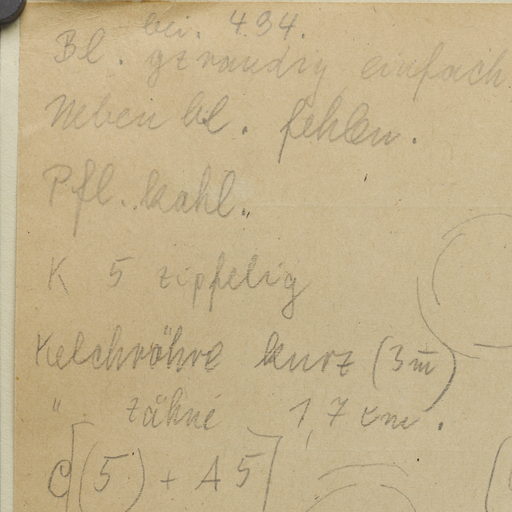 bei. 4.94.
Bl. gzrandig einfach
Neben bl. fehlen.
Pfl. kahl.
K 5 zipfelig
Kelchröhre kurz (3m̄)
" zähne 1,7 cm.
C[(5) + A 5]